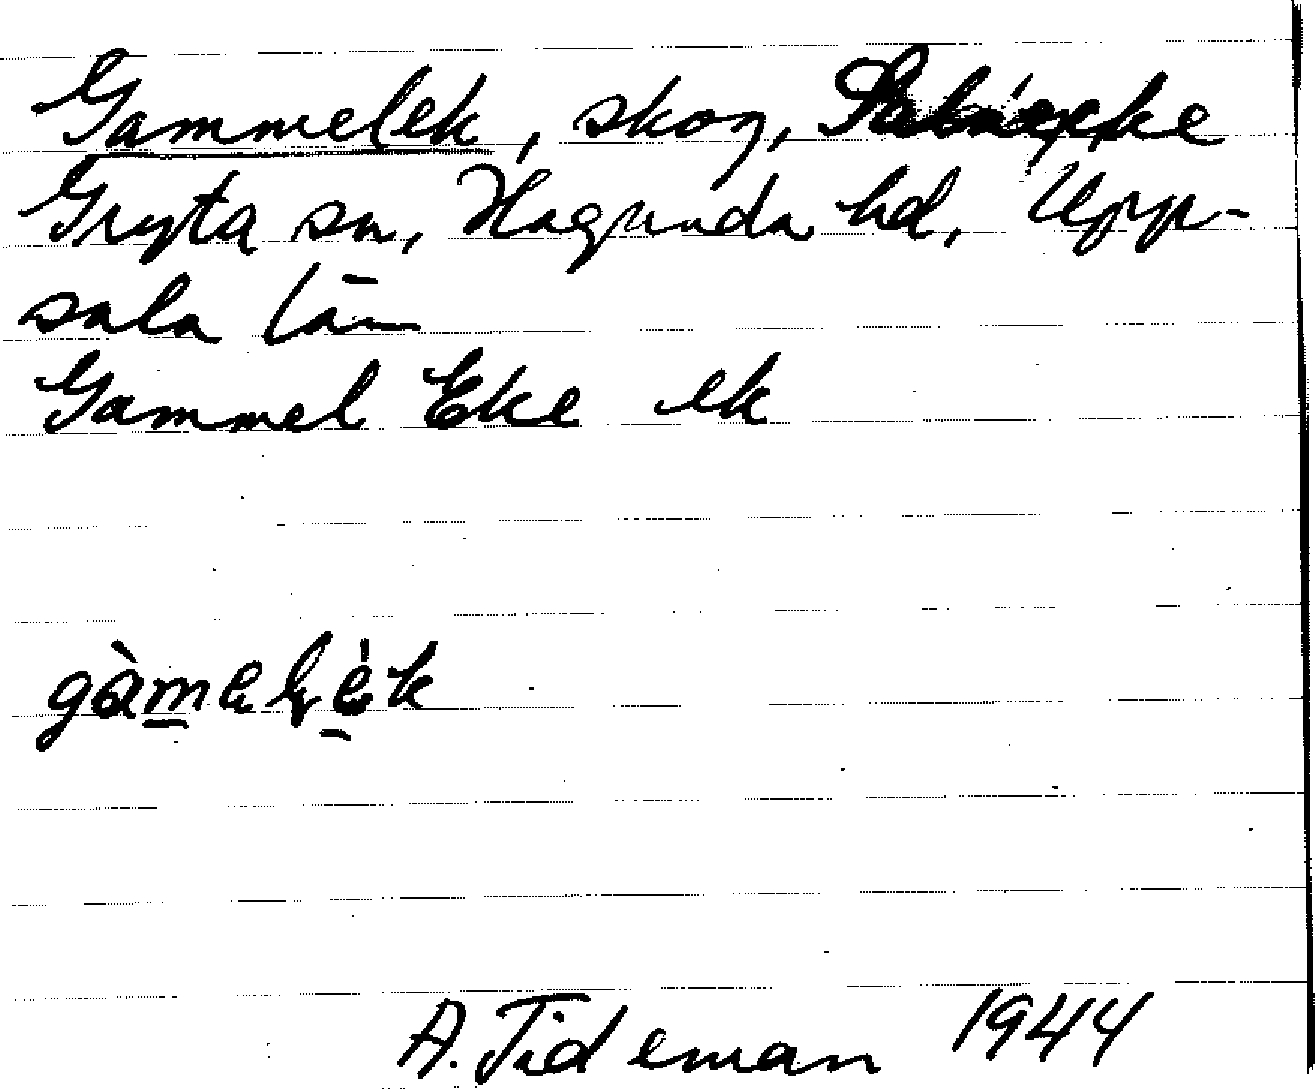 Gammelek, skog,
Gryta sn, Hagunda hd, Upp-
sala län
Gammel Eke ek
gàmelék
A. Tideman 1944